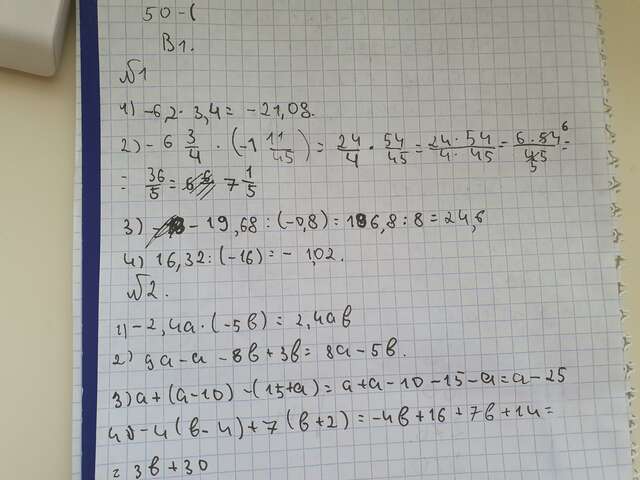 50-(
В1.
№1
1) -6,2 · 3,4 = -21,08.
2) -6 3/4 · (-1 11/45) = 24/4 · 54/45 = 24·54/4·45 = 6·54 6/45 5 =
= 36/5 = 7 1/5
3) -19,68 : (-0,8) = 196,8 : 8 = 24,6
4) 16,32 : (-16) = -1,02.
№2.
1) -2,4а · (-5в) = 2,4ав
2) 9а-а-8в+3в = 8а-5в.
3) а+(а-10)-(15+а) = а+а-10-15-а = а-25
4) -4(в-4)+7(в+2) = -4в+16+7в+14 =
= 3в+30